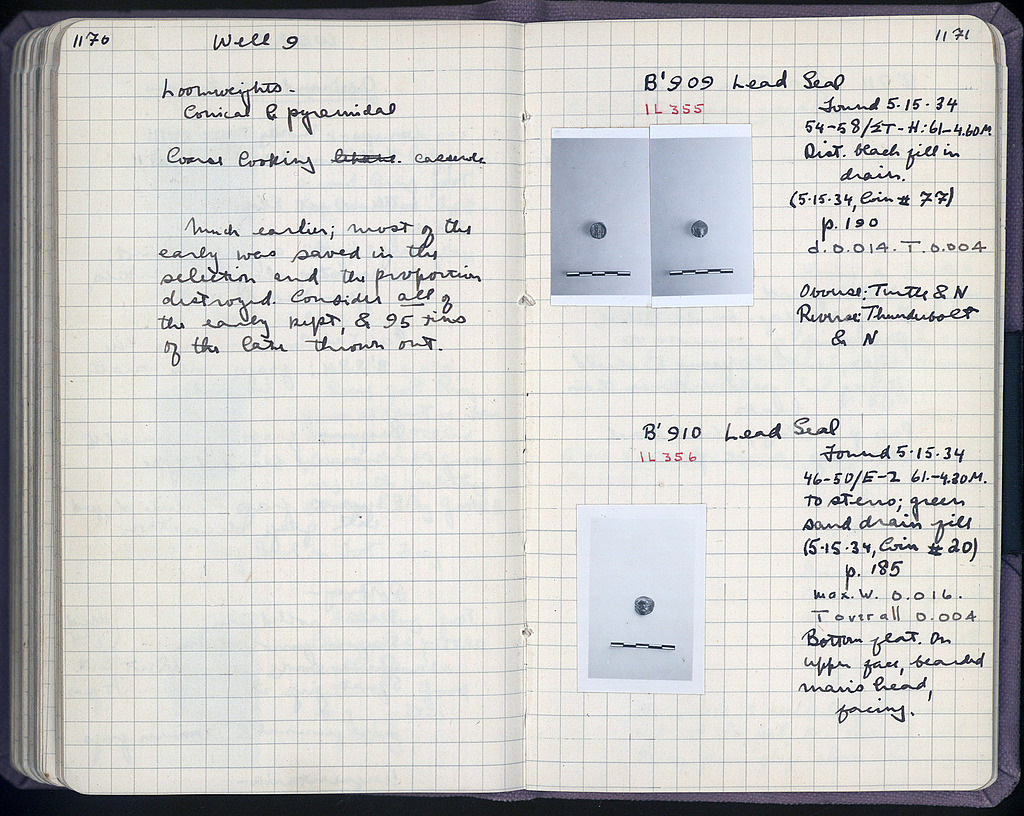 1170
Well 9
Loomweights -
Conical & pyramidal
Coarse Cooking casserole
Much earlier; most of the
early was saved in the
selection and the proportion
destroyed. Consider all of
the early kept, & 95
of the late thrown out.
1171
B'909 Lead Seal
IL 355
Found 5-15-34
54-58/ΣΤ-Η: 61-4.60M.
Dist. black fill in
drain.
(5-15-34, Coin # 77)
p. 190
d. 0.014. T. 0.004
Obverse: Turtle & N
Reverse: Thunderbolt
& N
B'910 Lead Seal
IL 356
Found 5-15-34
46-50/E-Z 61.-4.30M.
To stereo; green
sand drain fill
(5-15-34, Coin # 20)
p. 185
max. W. 0.016.
T overall 0.004
Bottom flat. On
upper face, bearded
man's head,
facing.